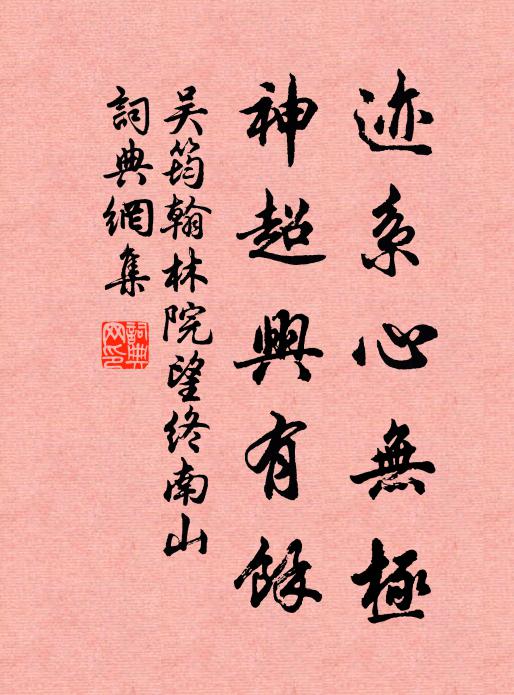 迹系心無極
神超興有餘
吴筠翰林院望終南山
詞典網集
詞典網印